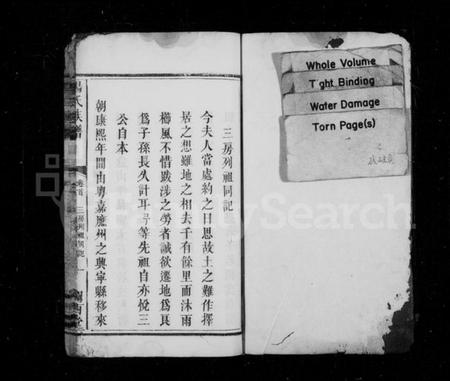 三房列祖同記
今夫人當處約之日思故土之難作擇
居之想雖地之相去千有餘里而沐雨
櫛風不惜跋涉之勞者誠欲遷地為良
為子孫長久計耳等先祖自亦悅三
公自本
朝康熙年間由粵嘉應州之興寧縣移來
氏族譜
卷首
三房列祖同記
一
Whole Volume
Tight Binding
Water Damage
Torn Page(s)
FamilySearch